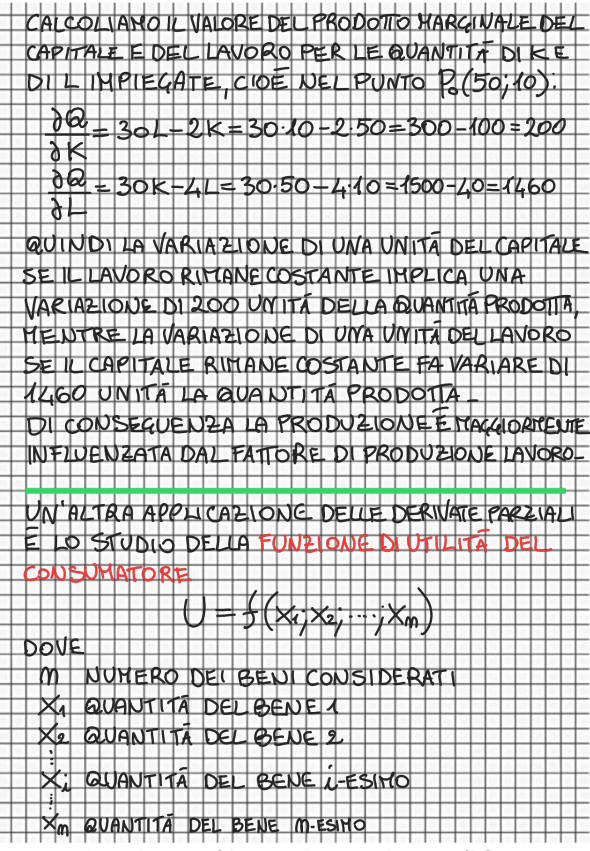 CALCOLIAMO IL VALORE DEL PRODOTTO MARGINALE DEL
CAPITALE E DEL LAVORO PER LE QUANTITÀ DI K E
DI L IMPIEGATE, CIOÈ NEL PUNTO P₀(50;10):
∂Q/∂K = 30L-2K=30·10-2·50=300-100=200
∂Q/∂L = 30K-4L=30·50-4·10=1500-40=1460
QUINDI LA VARIAZIONE DI UNA UNITÀ DEL CAPITALE
SE IL LAVORO RIMANE COSTANTE IMPLICA UNA
VARIAZIONE DI 200 UNITÀ DELLA QUANTITÀ PRODOTTA,
MENTRE LA VARIAZIONE DI UNA UNITÀ DEL LAVORO
SE IL CAPITALE RIMANE COSTANTE FA VARIARE DI
1460 UNITÀ LA QUANTITÀ PRODOTTA.
DI CONSEGUENZA LA PRODUZIONE È MAGGIORMENTE
INFLUENZATA DAL FATTORE DI PRODUZIONE LAVORO.
UN'ALTRA APPLICAZIONE DELLE DERIVATE PARZIALI
È LO STUDIO DELLA FUNZIONE DI UTILITÀ DEL
CONSUMATORE
U = f(x₁;x₂;...;xₙ)
DOVE
n NUMERO DEI BENI CONSIDERATI
X₁ QUANTITÀ DEL BENE 1
X₂ QUANTITÀ DEL BENE 2
⋮
Xᵢ QUANTITÀ DEL BENE i-ESIMO
⋮
Xₙ QUANTITÀ DEL BENE n-ESIMO